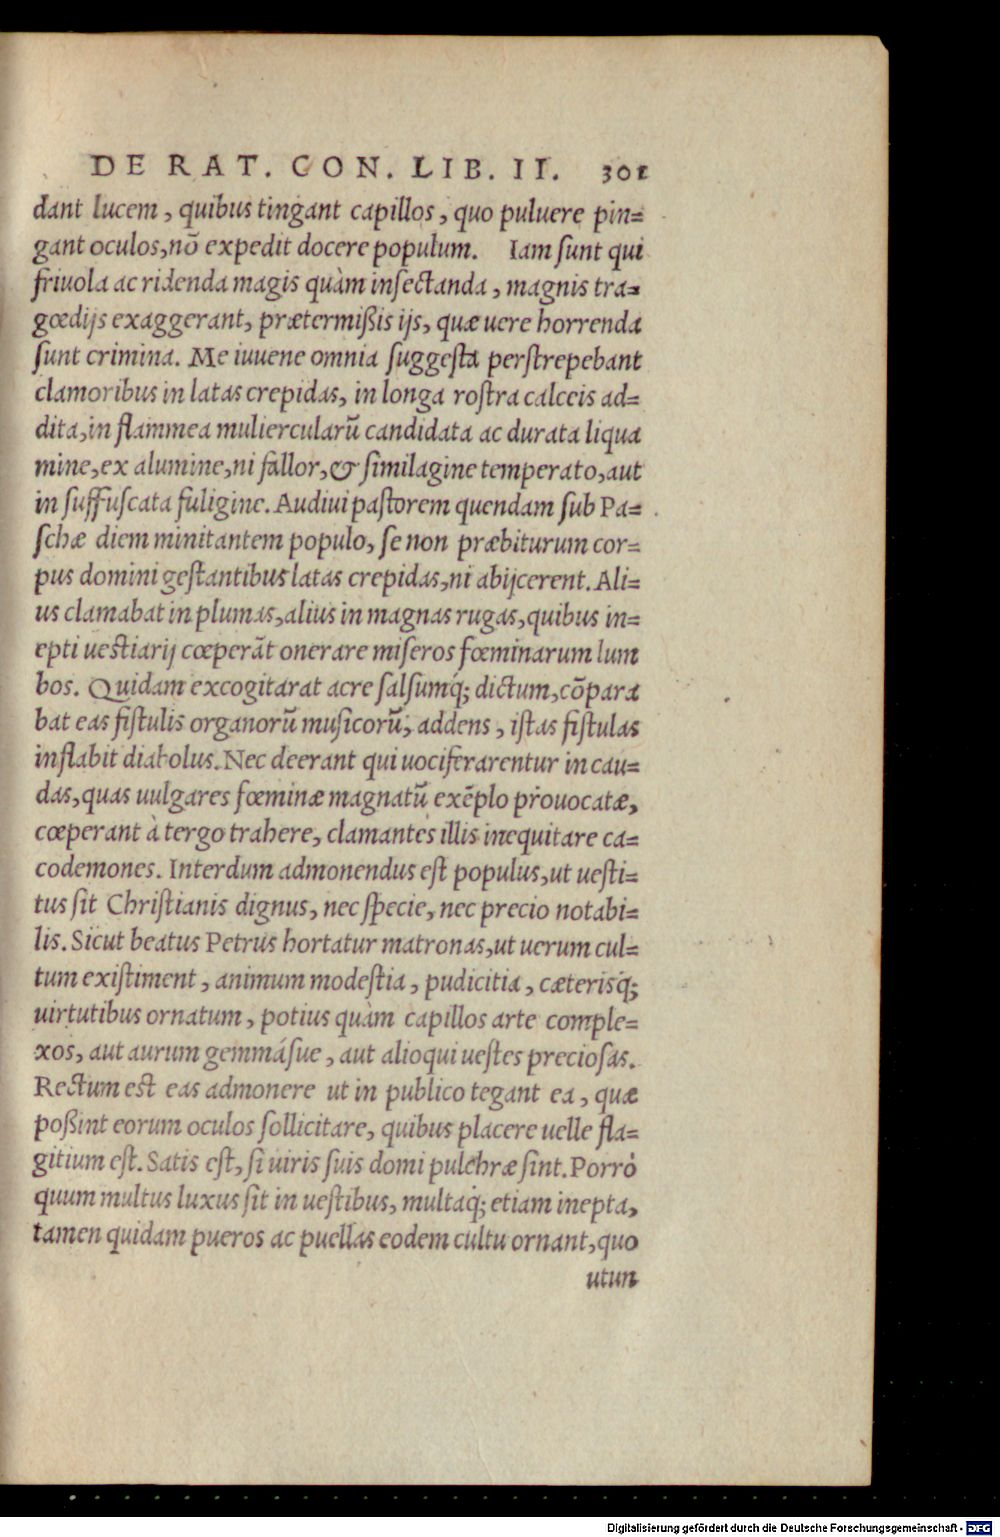 DE RAT. CON. LIB. II. 301
dant lucem, quibus tingant capillos, quo puluere pin=
gant oculos, nō expedit docere populum. Iam ſunt qui
friuola ac ridenda magis quàm inſectanda, magnis tra=
gœdijs exaggerant, prætermißis ijs, quæ uere horrenda
ſunt crimina. Me iuuene omnia ſuggeſta perſtrepebant
clamoribus in latas crepidas, in longa roſtra calceis ad=
dita, in flammea muliercularū candidata ac durata liqua
mine, ex alumine, ni fallor, & ſimilagine temperato, aut
in ſuffuſcata fuligine. Audiui paſtorem quendam ſub Pa=
ſchæ diem minitantem populo, ſe non præbiturum cor=
pus domini geſtantibus latas crepidas, ni abijcerent. Ali=
us clamabat in plumas, alius in magnas rugas, quibus in=
epti ueſtiarij cœperāt onerare miſeros fœminarum lum
bos. Quidam excogitarat acre ſalſumq́; dictum, cōpara
bat eas fiſtulis organorū muſicorū, addens, iſtas fiſtulas
inflabit diabolus. Nec deerant qui uociferarentur in cau=
das, quas uulgares fœminæ magnatū exēplo prouocatæ,
cœperant à tergo trahere, clamantes illis inequitare ca=
codemones. Interdum admonendus eſt populus, ut ueſti=
tus ſit Chriſtianis dignus, nec ſpecie, nec precio notabi=
lis. Sicut beatus Petrus hortatur matronas, ut uerum cul=
tum exiſtiment, animum modeſtia, pudicitia, cæterisq́;
uirtutibus ornatum, potius quàm capillos arte comple=
xos, aut aurum gemmáſue, aut alioqui ueſtes precioſas.
Rectum eſt eas admonere ut in publico tegant ea, quæ
poßint eorum oculos ſollicitare, quibus placere uelle fla=
gitium eſt. Satis eſt, ſi uiris ſuis domi pulchræ ſint. Porrò
quum multus luxus ſit in ueſtibus, multaq́; etiam inepta,
tamen quidam pueros ac puellas eodem cultu ornant, quo
utun
Digitalisierung gefördert durch die Deutsche Forschungsgemeinschaft - DFG